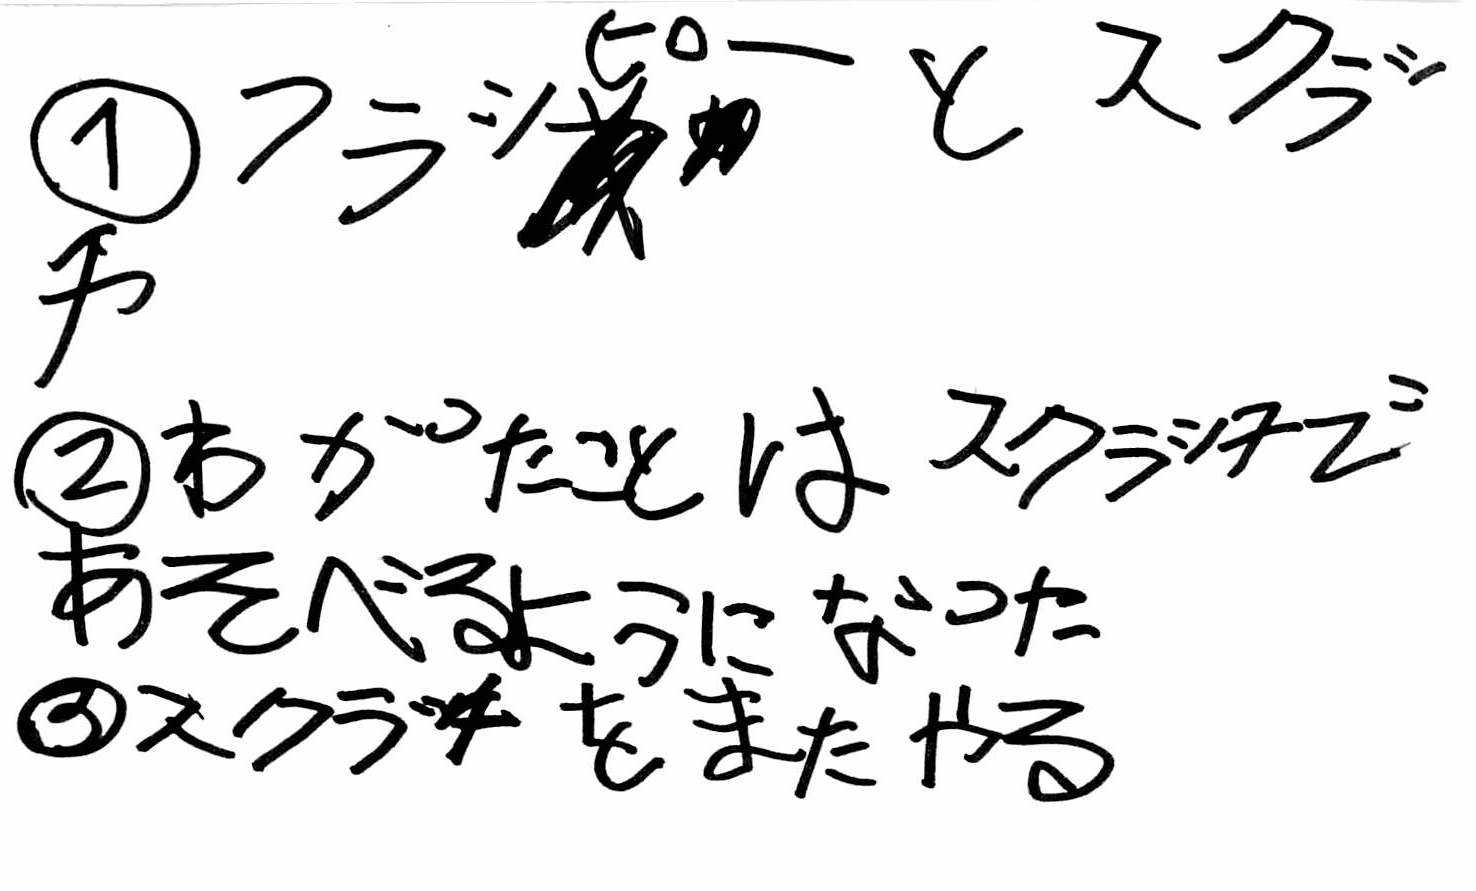 ①フラシピローとスクラッ
チ
②わがったことはスクラシチで
あそべるようになった
③スクラッチをまたやる